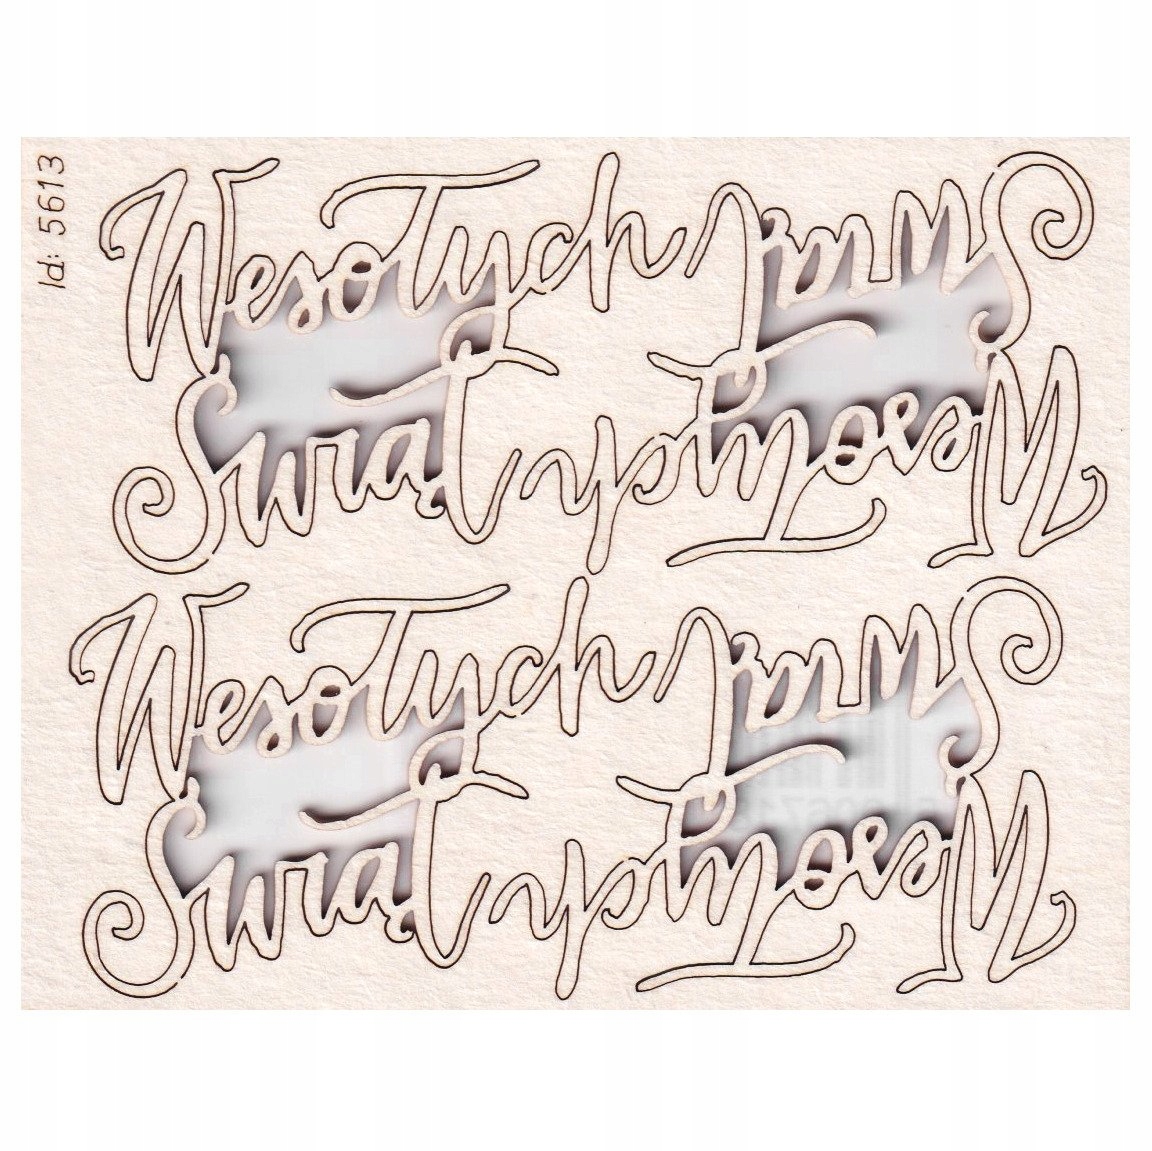 Id: 5613
Wesołych
Świąt
Wesołych
Świąt
Wesołych
Świąt
Wesołych
Świąt